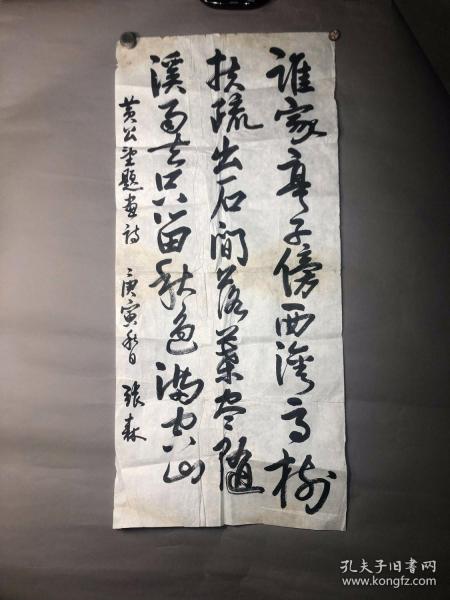 谁家亭子傍西湾高树
扶疏出石间落叶尽随
溪雨去只留秋色满空山
黄公望题画诗 庚寅秋日 张森
孔夫子旧书网
www.kongfz.com